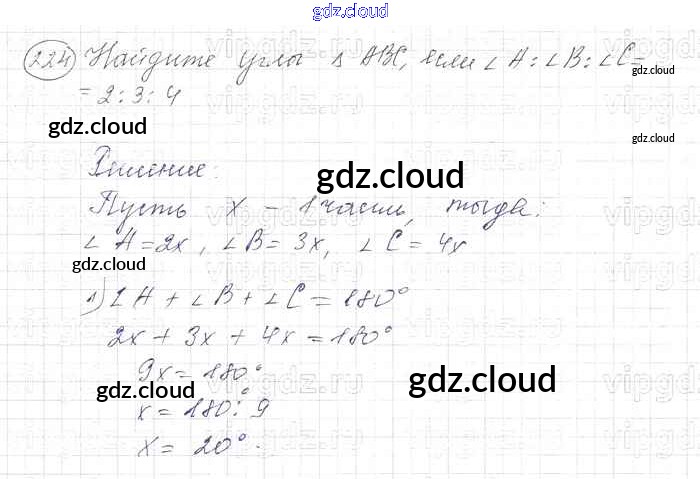 gdz.cloud
224 Найдите углы Δ ABC, если ∠A:∠B:∠C=
=2:3:4
gdz.cloud
gdz.cloud
gdz.cloud
Решение:
gdz.cloud
Пусть x - 1 часть, тогда:
∠A=2x, ∠B=3x, ∠C=4x
gdz.cloud
1) ∠A+∠B+∠C=180°
2x+3x+4x=180°
9x=180°
gdz.cloud
gdz.cloud
x=180°:9
x=20°.